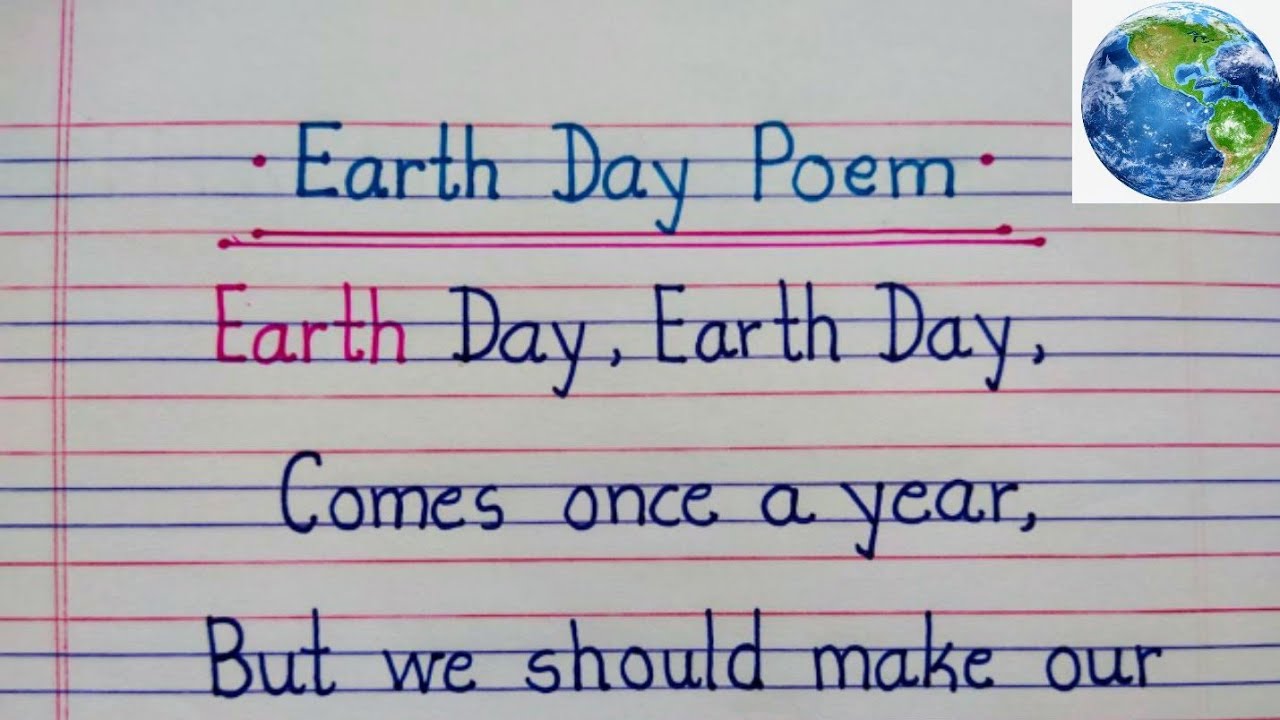 • Earth Day Poem •
Earth Day, Earth Day,
Comes once a year,
But we should make our